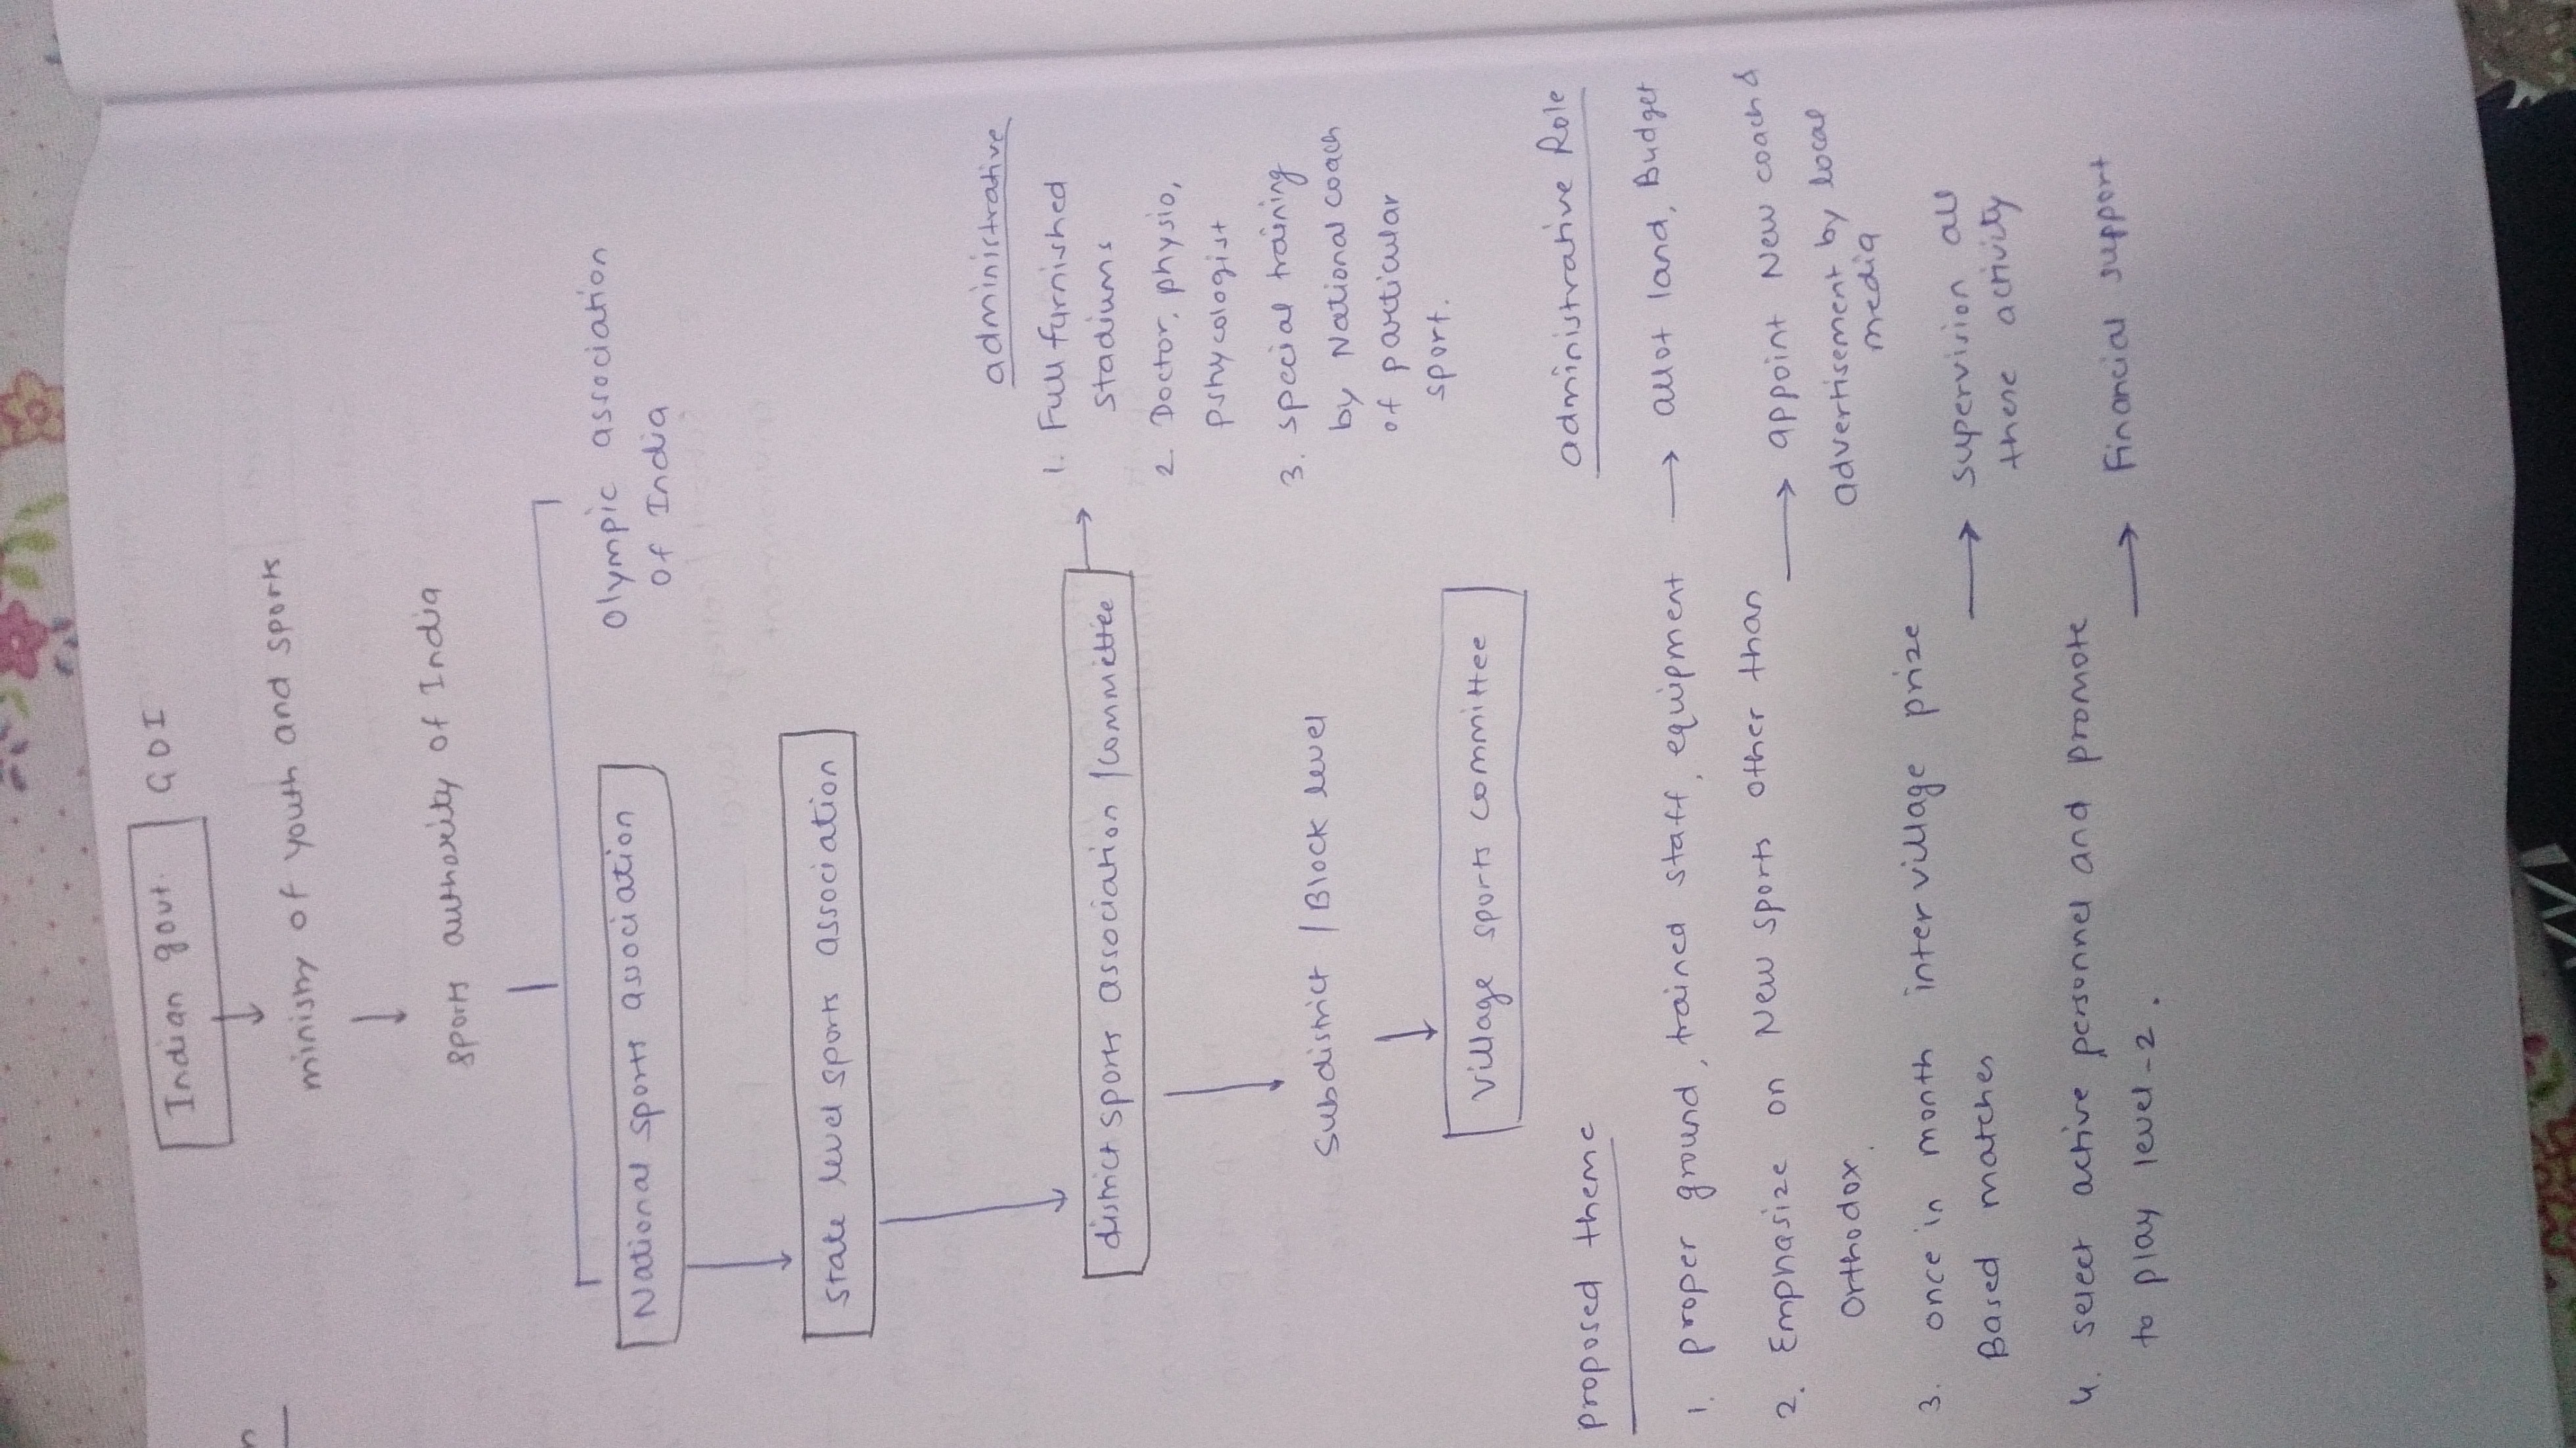 Indian govt. GOI
ministry of youth and sports
sports authority of India
National sports association
Olympic association
of India
State level sports association
district sports association / committee
administrative
1. Full furnished
stadiums
2. Doctor, physio,
pshycologist
3. special training
by National coach
of particular
sport.
Subdistrict / Block level
Village sports committee
proposed theme
administrative Role
1. proper ground, trained staff, equipment → allot land, Budget
2. Emphasize on New sports other than → appoint New coach &
Orthodox.
advertisement by local
media
3. once in month inter village prize → supervision all
Based matches
there activity
4. select active personnel and promote → Financial support
to play level-2.